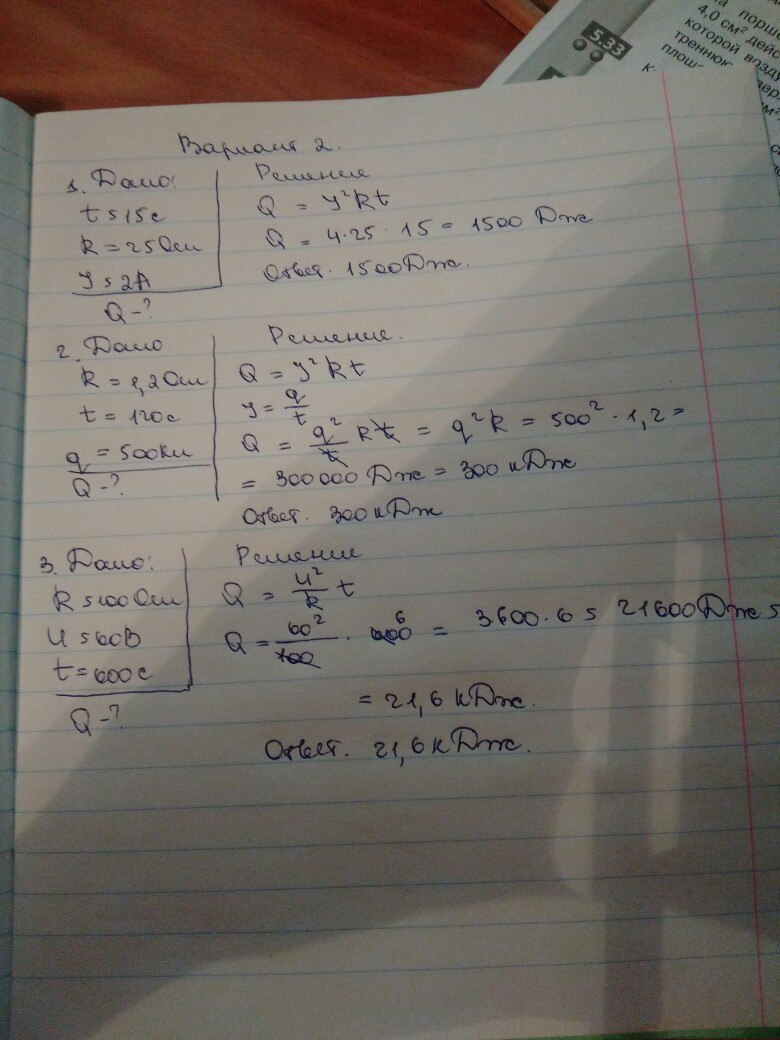 5.33
на порш
4,0 см² дейс
которой возду
треннюю
площ
Вариант 2.
1. Дано:
t = 15 с
R = 25 Ом
J = 2A
Q - ?
Решение
Q = J²Rt
Q = 4·25·15 = 1500 Дж
Ответ. 1500 Дж.
2. Дано
R = 1,2 Ом
t = 120 с
q = 500 Кл
Q - ?
Решение.
Q = J²Rt
J = q/t
Q = q²/t Rt = q²R = 500² · 1,2 =
= 300000 Дж = 300 кДж
Ответ. 300 кДж
3. Дано:
R = 100 Ом
U = 60 В
t = 600 с
Q - ?
Решение
Q = U²/R t
Q = 60²/100 · 600 6 = 3600·6 = 21600 Дж =
= 21,6 кДж.
Ответ. 21,6 кДж.